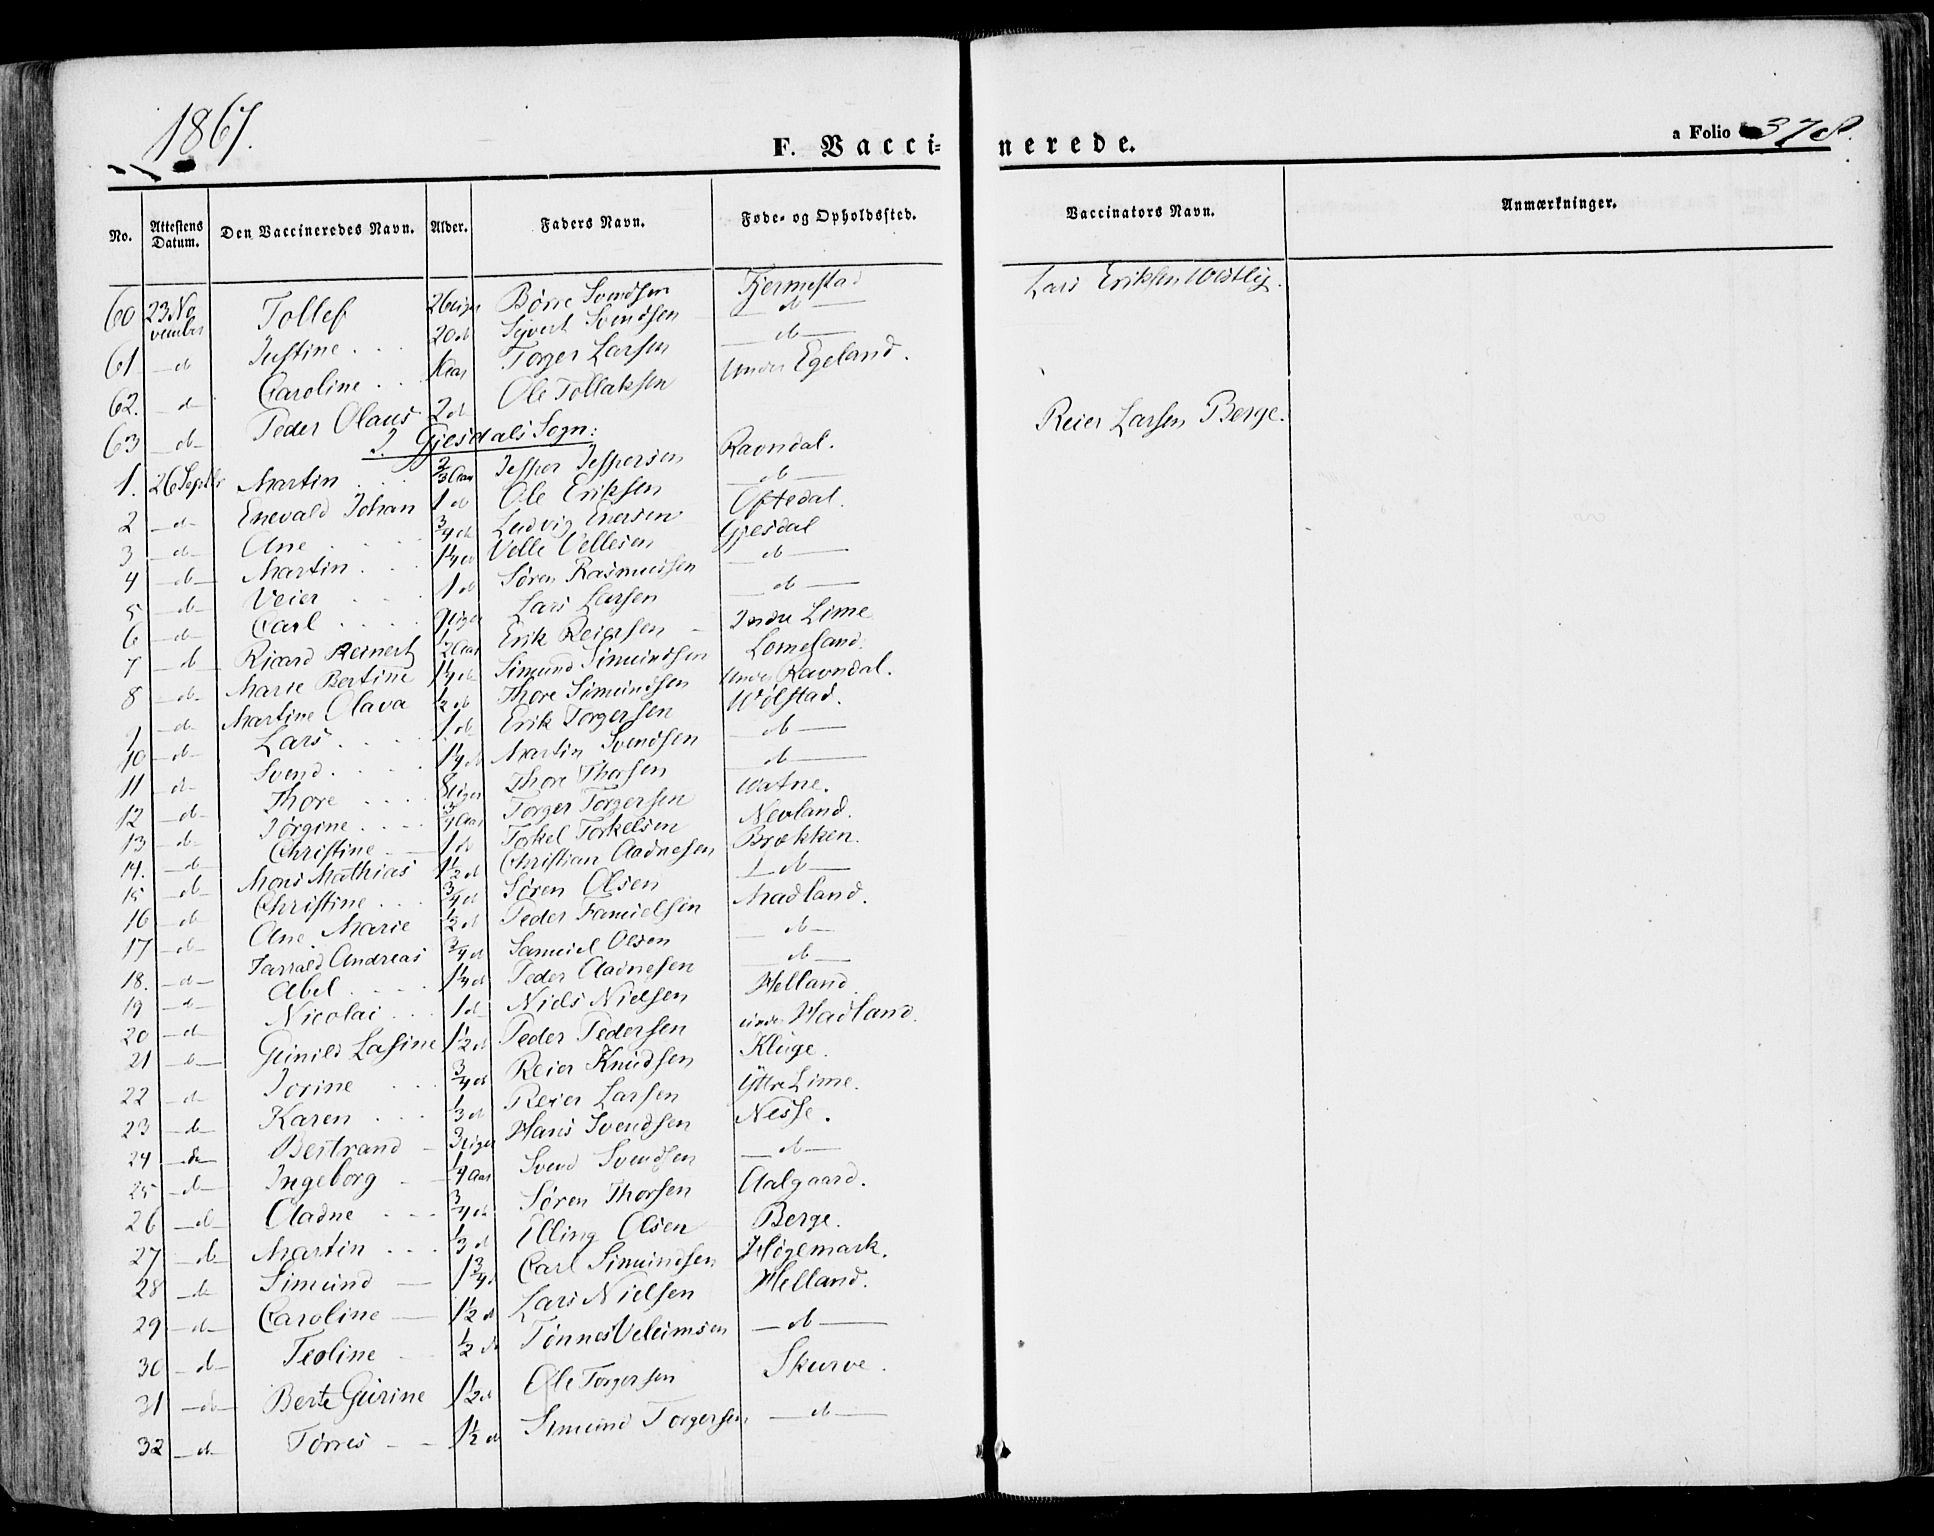 1867.
F. Vaccinerede.
a Folio 378.
No. Attestens Datum. Den Vaccineredes Navn. Alder. Faders Navn. Føde- og Opholdssted. Vaccinators Navn. Anmærkninger.
60 23 November Tollef 26 Uger Børre Svendsen Fjermestad Lars Eriksen Westlig.
61 — d — Justine . . . 20 d Syvert Svendsen — d —
62. — d — Caroline . . . Aar Torger Larsen — d —
63 — d — Peder Olaus 2 d Ole Tollaksen Under Egeland.
2. Gjesdals Sogn:
1. 26 Septbr Martin . . . Aar Jesper Jespersen Ravndal. Reier Larsen Berge.
2 — d — Enevald Johan 1 d Ole Eriksen — d —
3 — d — Ane . . . 3/4 d Ludvig Eversen Oftedal.
4 — d — Martin . . . 1 1/4 d Velle Vellesen Gjesdal
5 — d — Veier . . . 1 d Søren Rasmussen — d —
6 — d — Carl . . . 9 Uger Lars Larsen — d —
7 — d — Ricard Reinert 1/2 Aar Erik Reiersen Indre Lime
8 — d — Marie Bertine 1 1/4 d Simund Simundsen Lomeland.
1 — d — Martine Olava 1/2 d Thore Simundsen Under Ravndal.
10 — d — Lars . . . 1 d Erik Torgersen Wølstad.
11 — d — Svend . . . 1 1/4 d Martin Svendsen — d —
12 — d — Thore . . . 8 Uger Thore Thorsen — d —
13 — d — Jørgine . . . 3/4 Aar Torger Torgersen Watne.
14. — d — Christine — 1 d Torkel Torkelsen Nevland.
15 — d — Mons Mathias 1 1/2 d Christian Aadnesen Brækken.
16 — d — Christine . . . 3/4 d Søren Olsen — d —
17 — d — Ane Marie 1/2 d Peder Samuelsen Madland.
18. — d — Andreas 3/4 d Samuel Olsen — d —
19 — d — Abel . . . 1 1/4 d Peder Aadnesen — d —
20 — d — Nicolai . . . 1 d Niels Nielsen Helland
21 — d — Gunild Lasine 1 1/2 d Peder Pedersen under Madland.
22 — d — Jorine . . . 3/4 d Reier Knudsen Kluge.
23 — d — Karen . . . 1/3 d Reier Larsen Yttre Lime.
24 — d — Bertrand — 3 Uger Hans Svendsen Nesse.
25 — d — Ingeborg — 1/4 Aar Svend Svendsen — d —
26 — d — Aadne . . . 3/4 d Søren Thorsen Aalgaard.
27 — d — Martin . . . 1/3 d Elling Olsen Berge.
28 — d — Simund — 1 3/4 d Carl Simundsen Høgemark.
29 — d — Caroline — 1 1/2 d Lars Nielsen Helland.
30 — d — Teoline — 1/2 d Tønnes Velumsen — d —
31 — d — Berte Gurine 1 1/2 d Ole Torgersen Skurve.
32 — d — Tørres — 1 1/2 d Simund Torgersen — d —